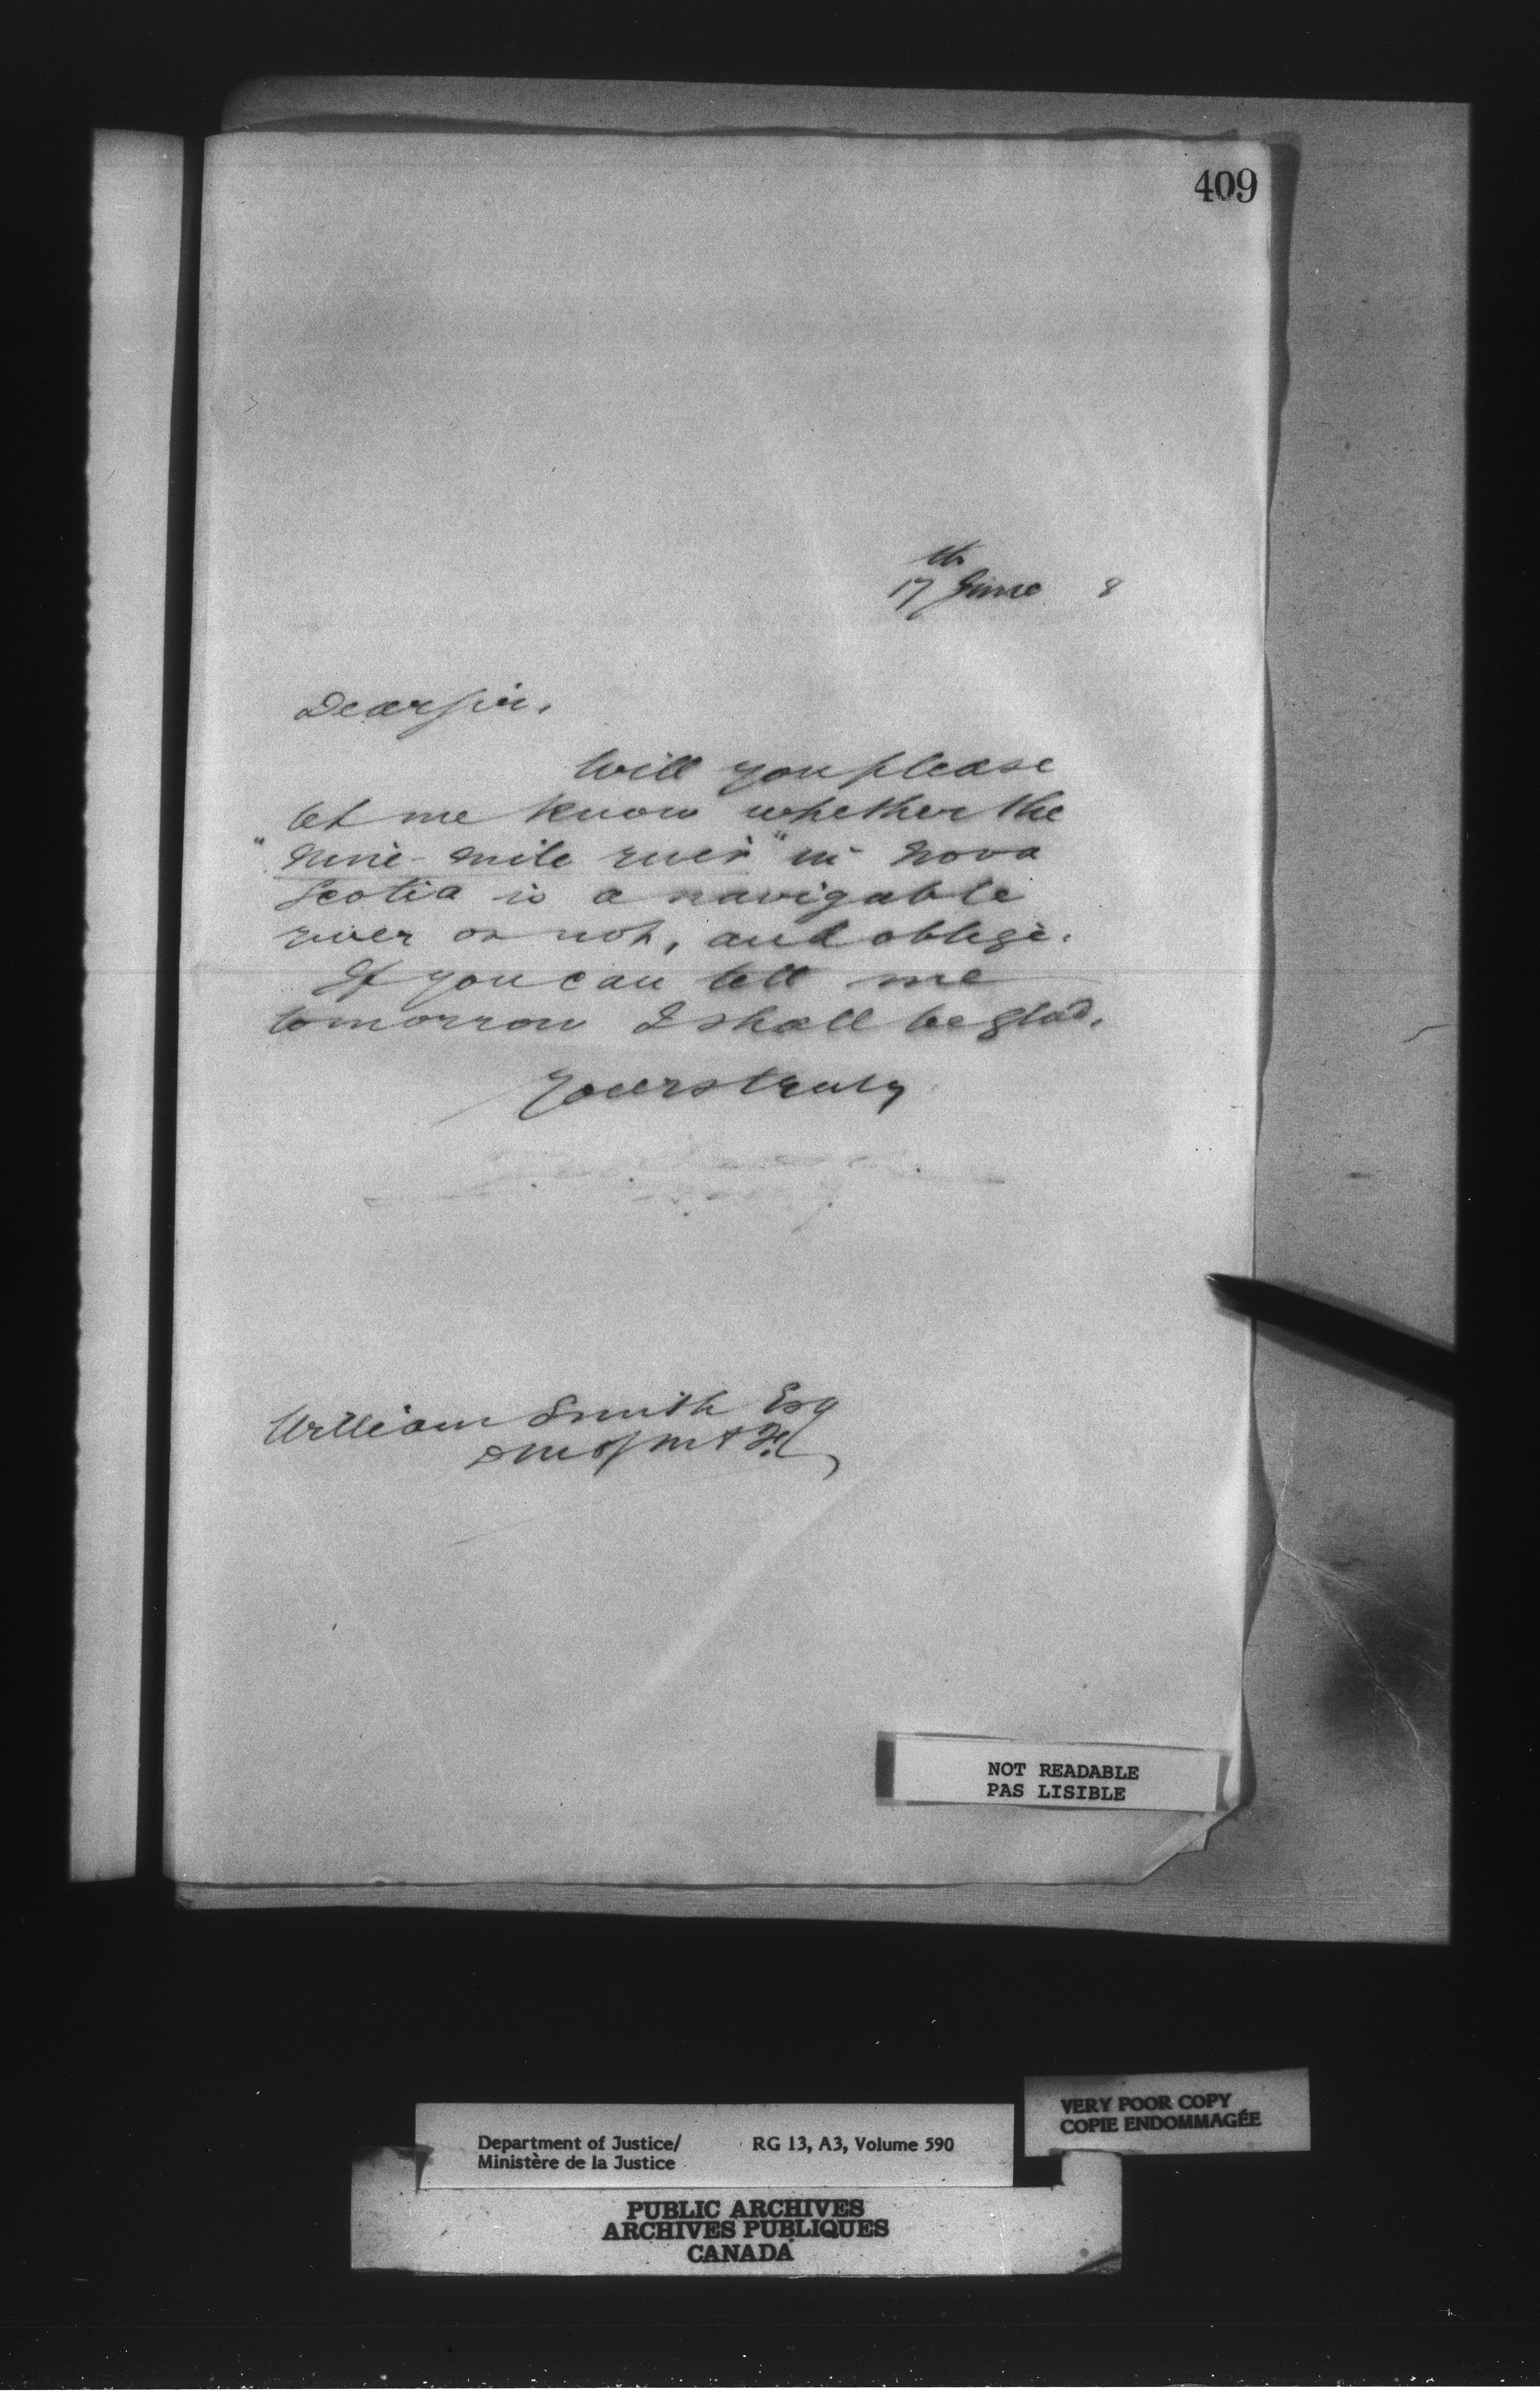 409
17th June 8
Dear Sir,
Will you please
let me know whether the
"Nine-mile river" in Nova
Scotia is a navigable
river or not, and oblige.
If you can tell me
tomorrow I shall be glad.
Yours truly
William Smith Esq
D M of M & F
NOT READABLE
PAS LISIBLE
VERY POOR COPY
COPIE ENDOMMAGÉE
Department of Justice/ RG 13, A3, Volume 590
Ministère de la Justice
PUBLIC ARCHIVES
ARCHIVES PUBLIQUES
CANADA